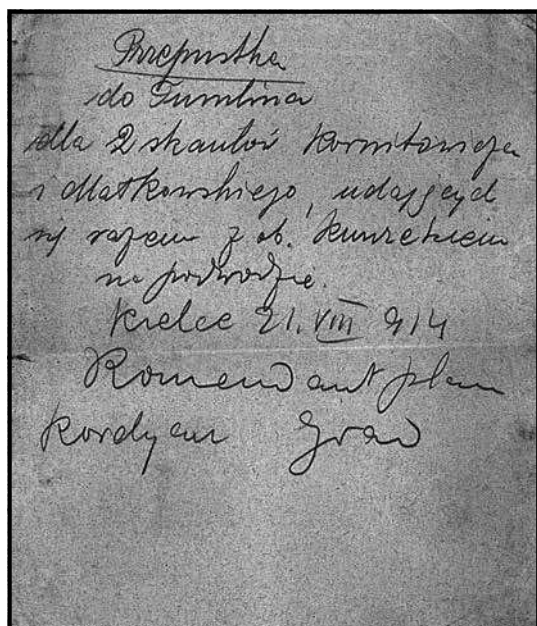 Przepustka
do Tumlina
dla 2 skautów Korniłowicza
i Matkowskiego, udających
się razem z ob. Kunzetkiem
na podwodzie.
Kielce 21. VIII 914
Komendant placu
Kordyan Grad